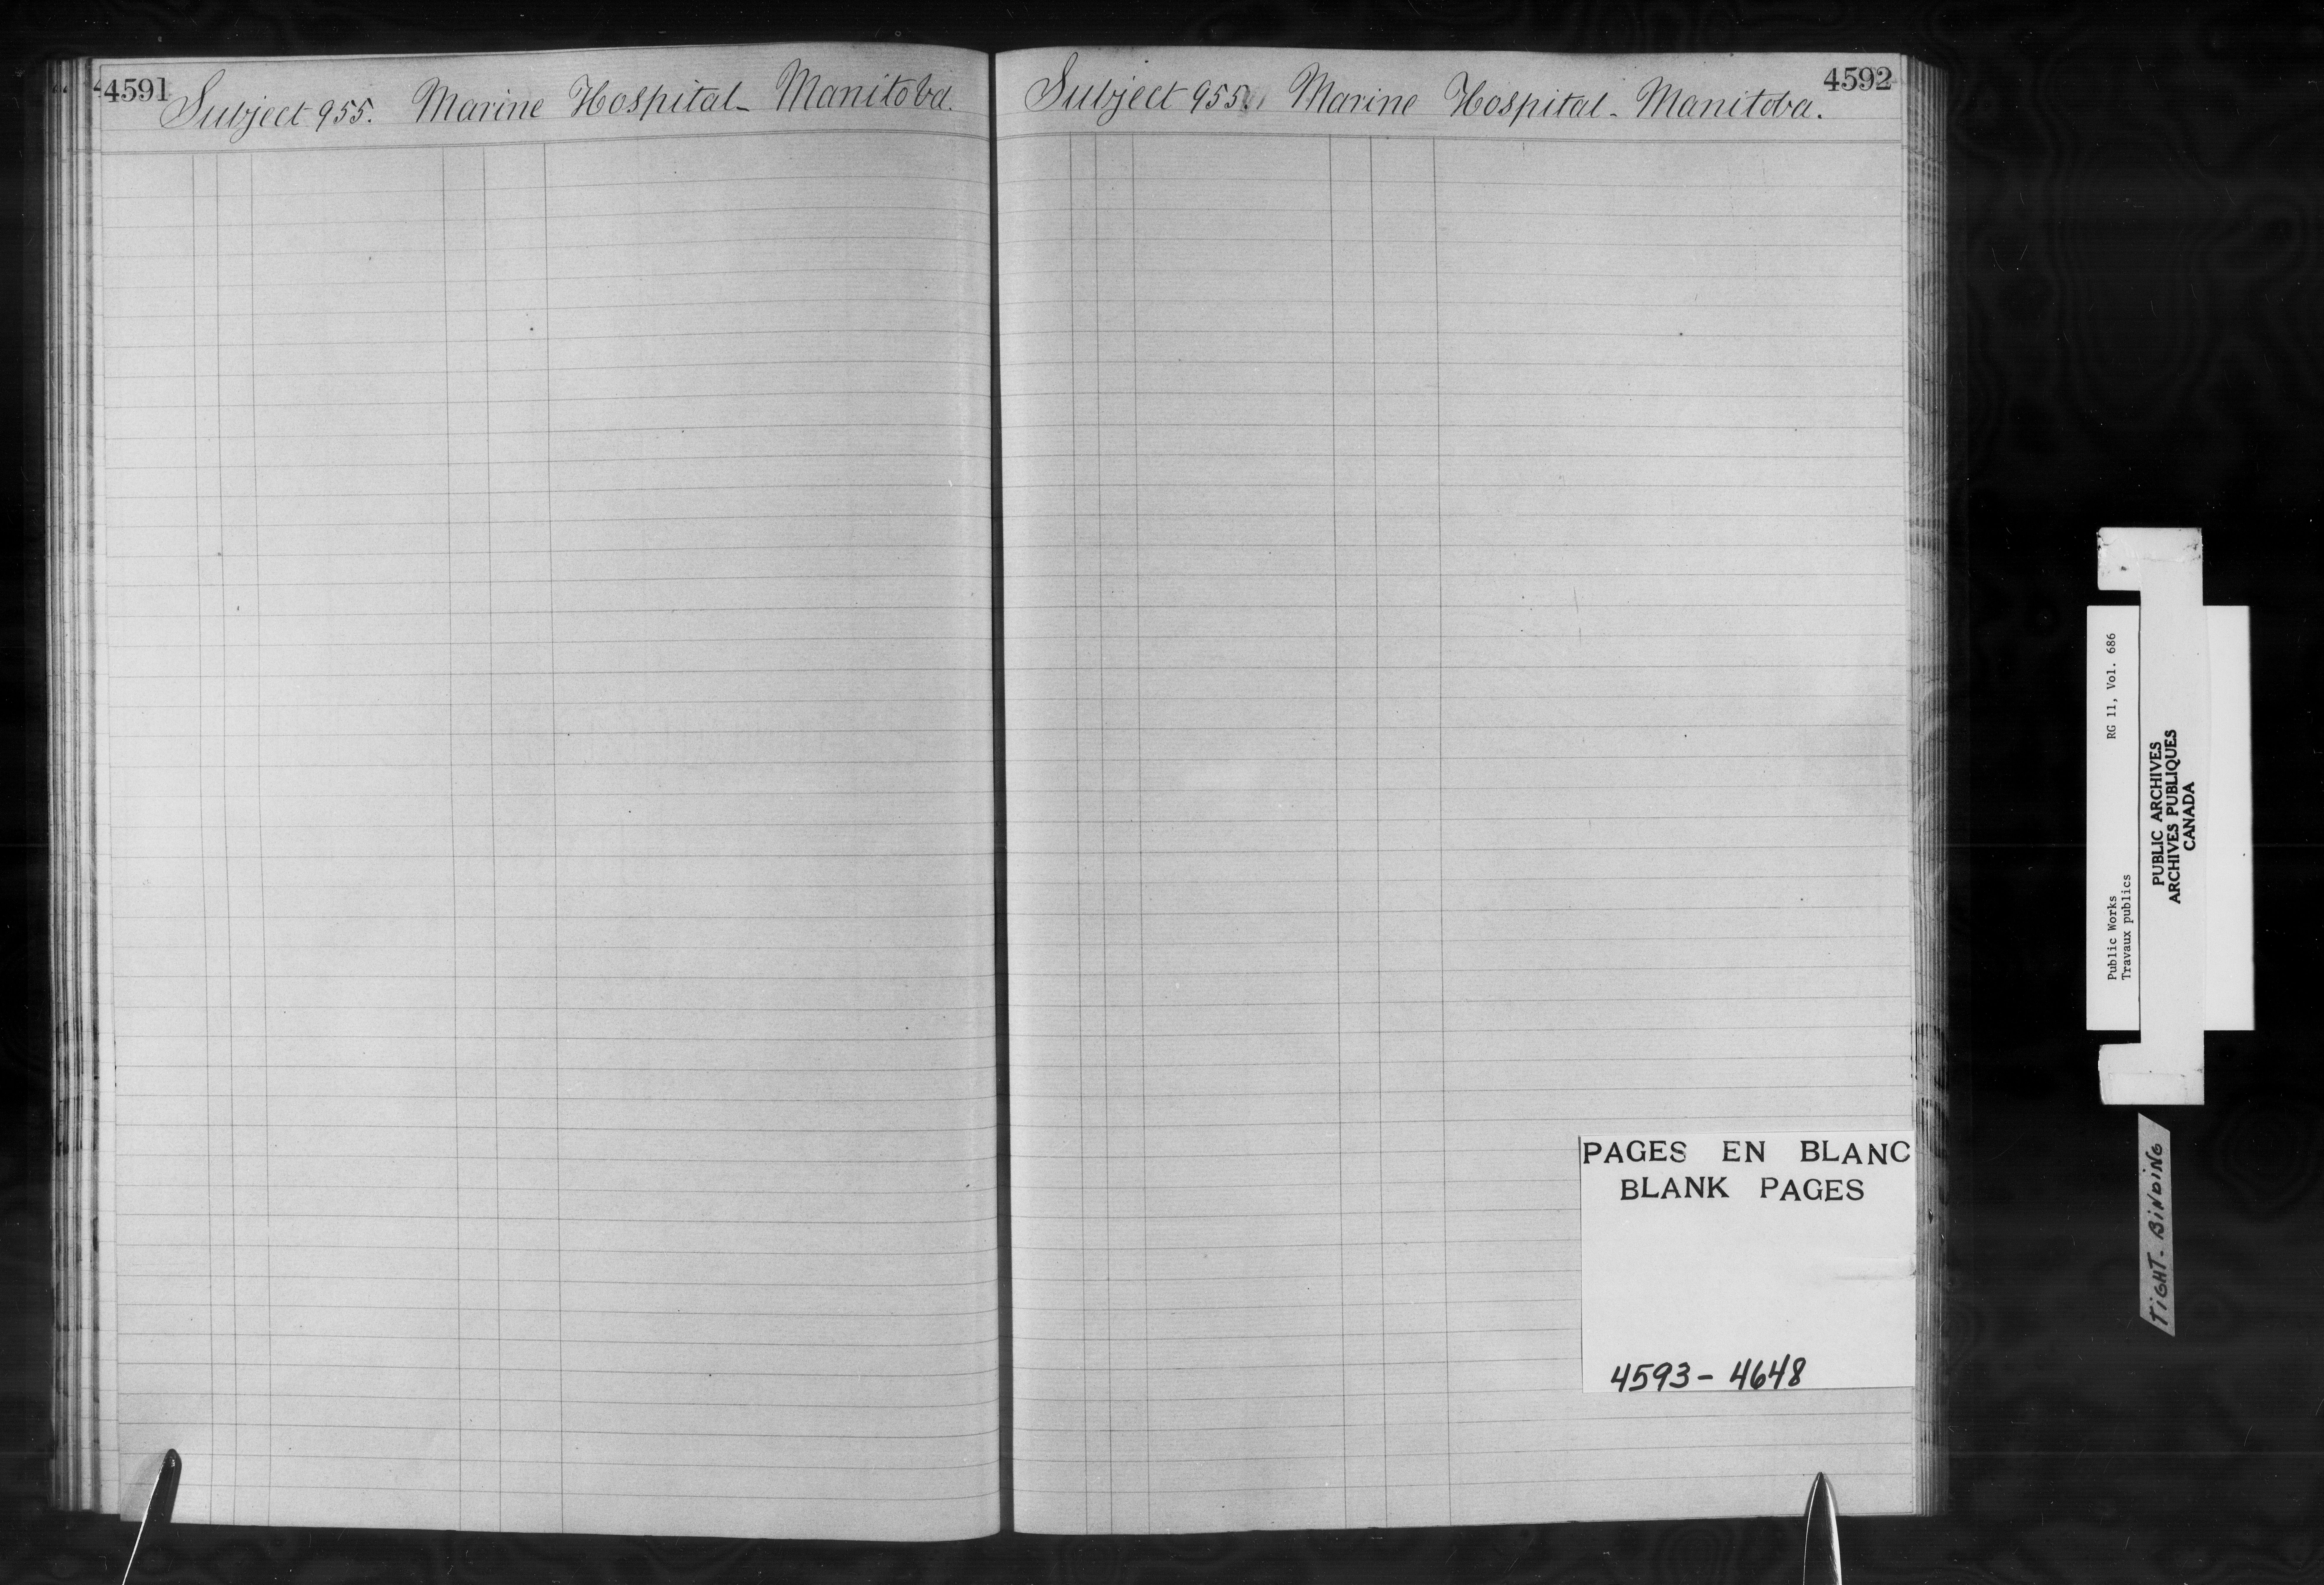 4591
Subject 955. Marine Hospital - Manitoba.
4592
Subject 955. Marine Hospital - Manitoba.
PAGES EN BLANC
BLANK PAGES
4593 - 4648
Public Works RG 11, Vol. 686
Travaux publics
PUBLIC ARCHIVES
ARCHIVES PUBLIQUES
CANADA
TIGHT - BINDING